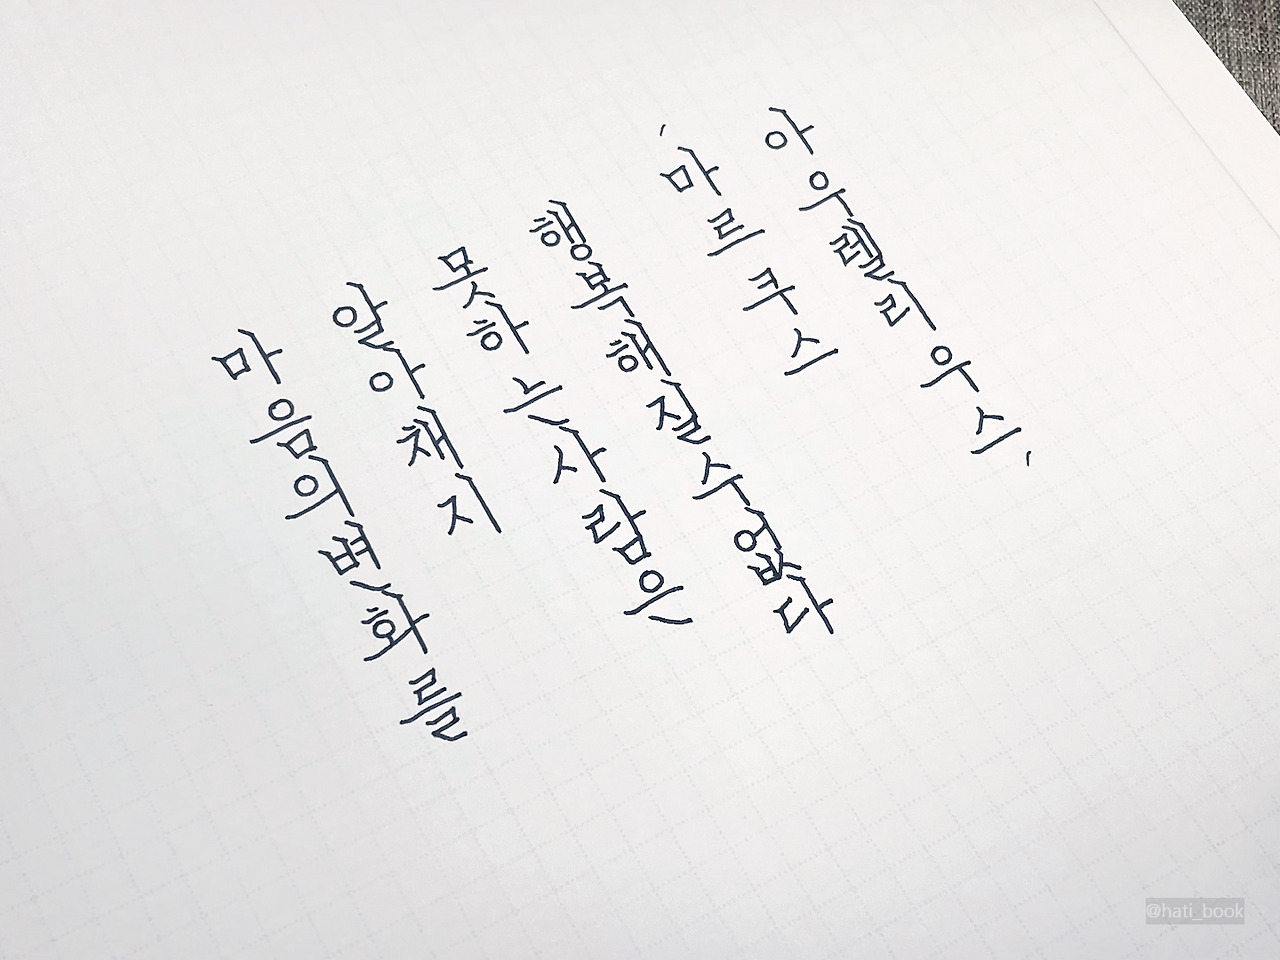 마음의변화를
알아채지
못하는사람은
행복해질수없다
'마르쿠스
아우렐리우스'
@hati_book